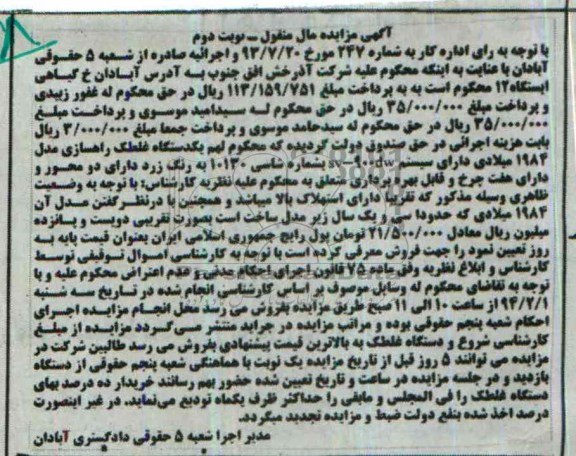 آگهی مزایده مال منقول ـ نوبت دوم
با توجه به رای اداره کار به شماره ۲۴۷ مورخ ۹۳/۷/۲۰ و اجرائیه صادره از شعبه ۵ حقوقی
آبادان با عنایت به اینکه محکوم علیه شرکت آذرخش افق جنوب به آدرس آبادان خ گیاهی
ایستگاه۱۲ محکوم است به به پرداخت مبلغ ۱۱۳/۱۵۹/۷۵۱ ریال در حق محکوم له غفور زبیدی
و پرداخت مبلغ ۳۵/۰۰۰/۰۰۰ ریال در حق محکوم له سیدامید موسوی و پرداخت مبلغ
۳۵/۰۰۰/۰۰۰ ریال در حق محکوم له سیدحامد موسوی و پرداخت جمعا مبلغ ۳/۰۰۰/۰۰۰ ریال
بابت هزینه اجرائی در حق صندوق دولت گردیده که محکوم لهم یکدستگاه غلطک راهسازی مدل
۱۹۸۴ میلادی دارای سیستم بشماره شاسی ۱۰۱۳۰ به رنگ زرد دارای دو محور و
دارای هفت چرخ و قابل بهره برداری متعلق به محکوم علیه نظریه کارشناسی: با توجه به وضعیت
ظاهری وسیله مذکور که تقریبا دارای استهلاک بالا میباشد و همچنین با درنظرگفتن مدل آن
۱۹۸۴ میلادی که حدودا سی و یک سال زیر مدل ساخت است بصورت تقریبی دویست و پانزده
میلیون ریال معادل ۲۱/۵۰۰/۰۰۰ تومان پول رایج جمهوری اسلامی ایران بعنوان قیمت پایه به
روز تعیین نمود را جهت فروش معرفی کرده است با توجه به کارشناسی اموال توقیفی توسط
کارشناس و ابلاغ نظریه وفق ماده ۷۵ قانون اجرای احکام مدنی و عدم اعتراض محکوم علیه و با
توجه به تقاضای محکوم له وسایل موصوف بر اساس کارشناسی انجام شده در تاریخ سه شنبه
۹۴/۲/۱ از ساعت ۱۰ الی ۱۱ صبح طریق مزایده بفروش می رسد محل انجام مزایده اجرای
احکام شعبه پنجم حقوقی بوده و مراتب مزایده در جراید منتشر می گردد مزایده از مبلغ
کارشناسی شروع و دستگاه غلطک به بالاترین قیمت پیشنهادی بفروش می رسد طالبین شرکت در
مزایده می توانند ۵ روز قبل از تاریخ مزایده یک نوبت با هماهنگی شعبه پنجم حقوقی از دستگاه
بازدید و در جلسه مزایده در ساعت و تاریخ تعیین شده حضور بهم رسانند خریدار ده درصد بهای
دستگاه غلطک را فی المجلس و مابقی را حداکثر ظرف یکماه تودیع می‌نماید. در غیر اینصورت
درصد اخذ شده بنفع دولت ضبط و مزایده تجدید میگردد.
مدیر اجرا شعبه ۵ حقوقی دادگستری آبادان